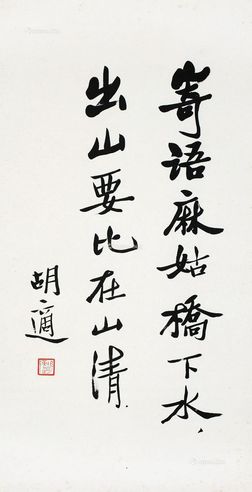 寄语麻姑橋下水，
出山要比在山清．
胡適